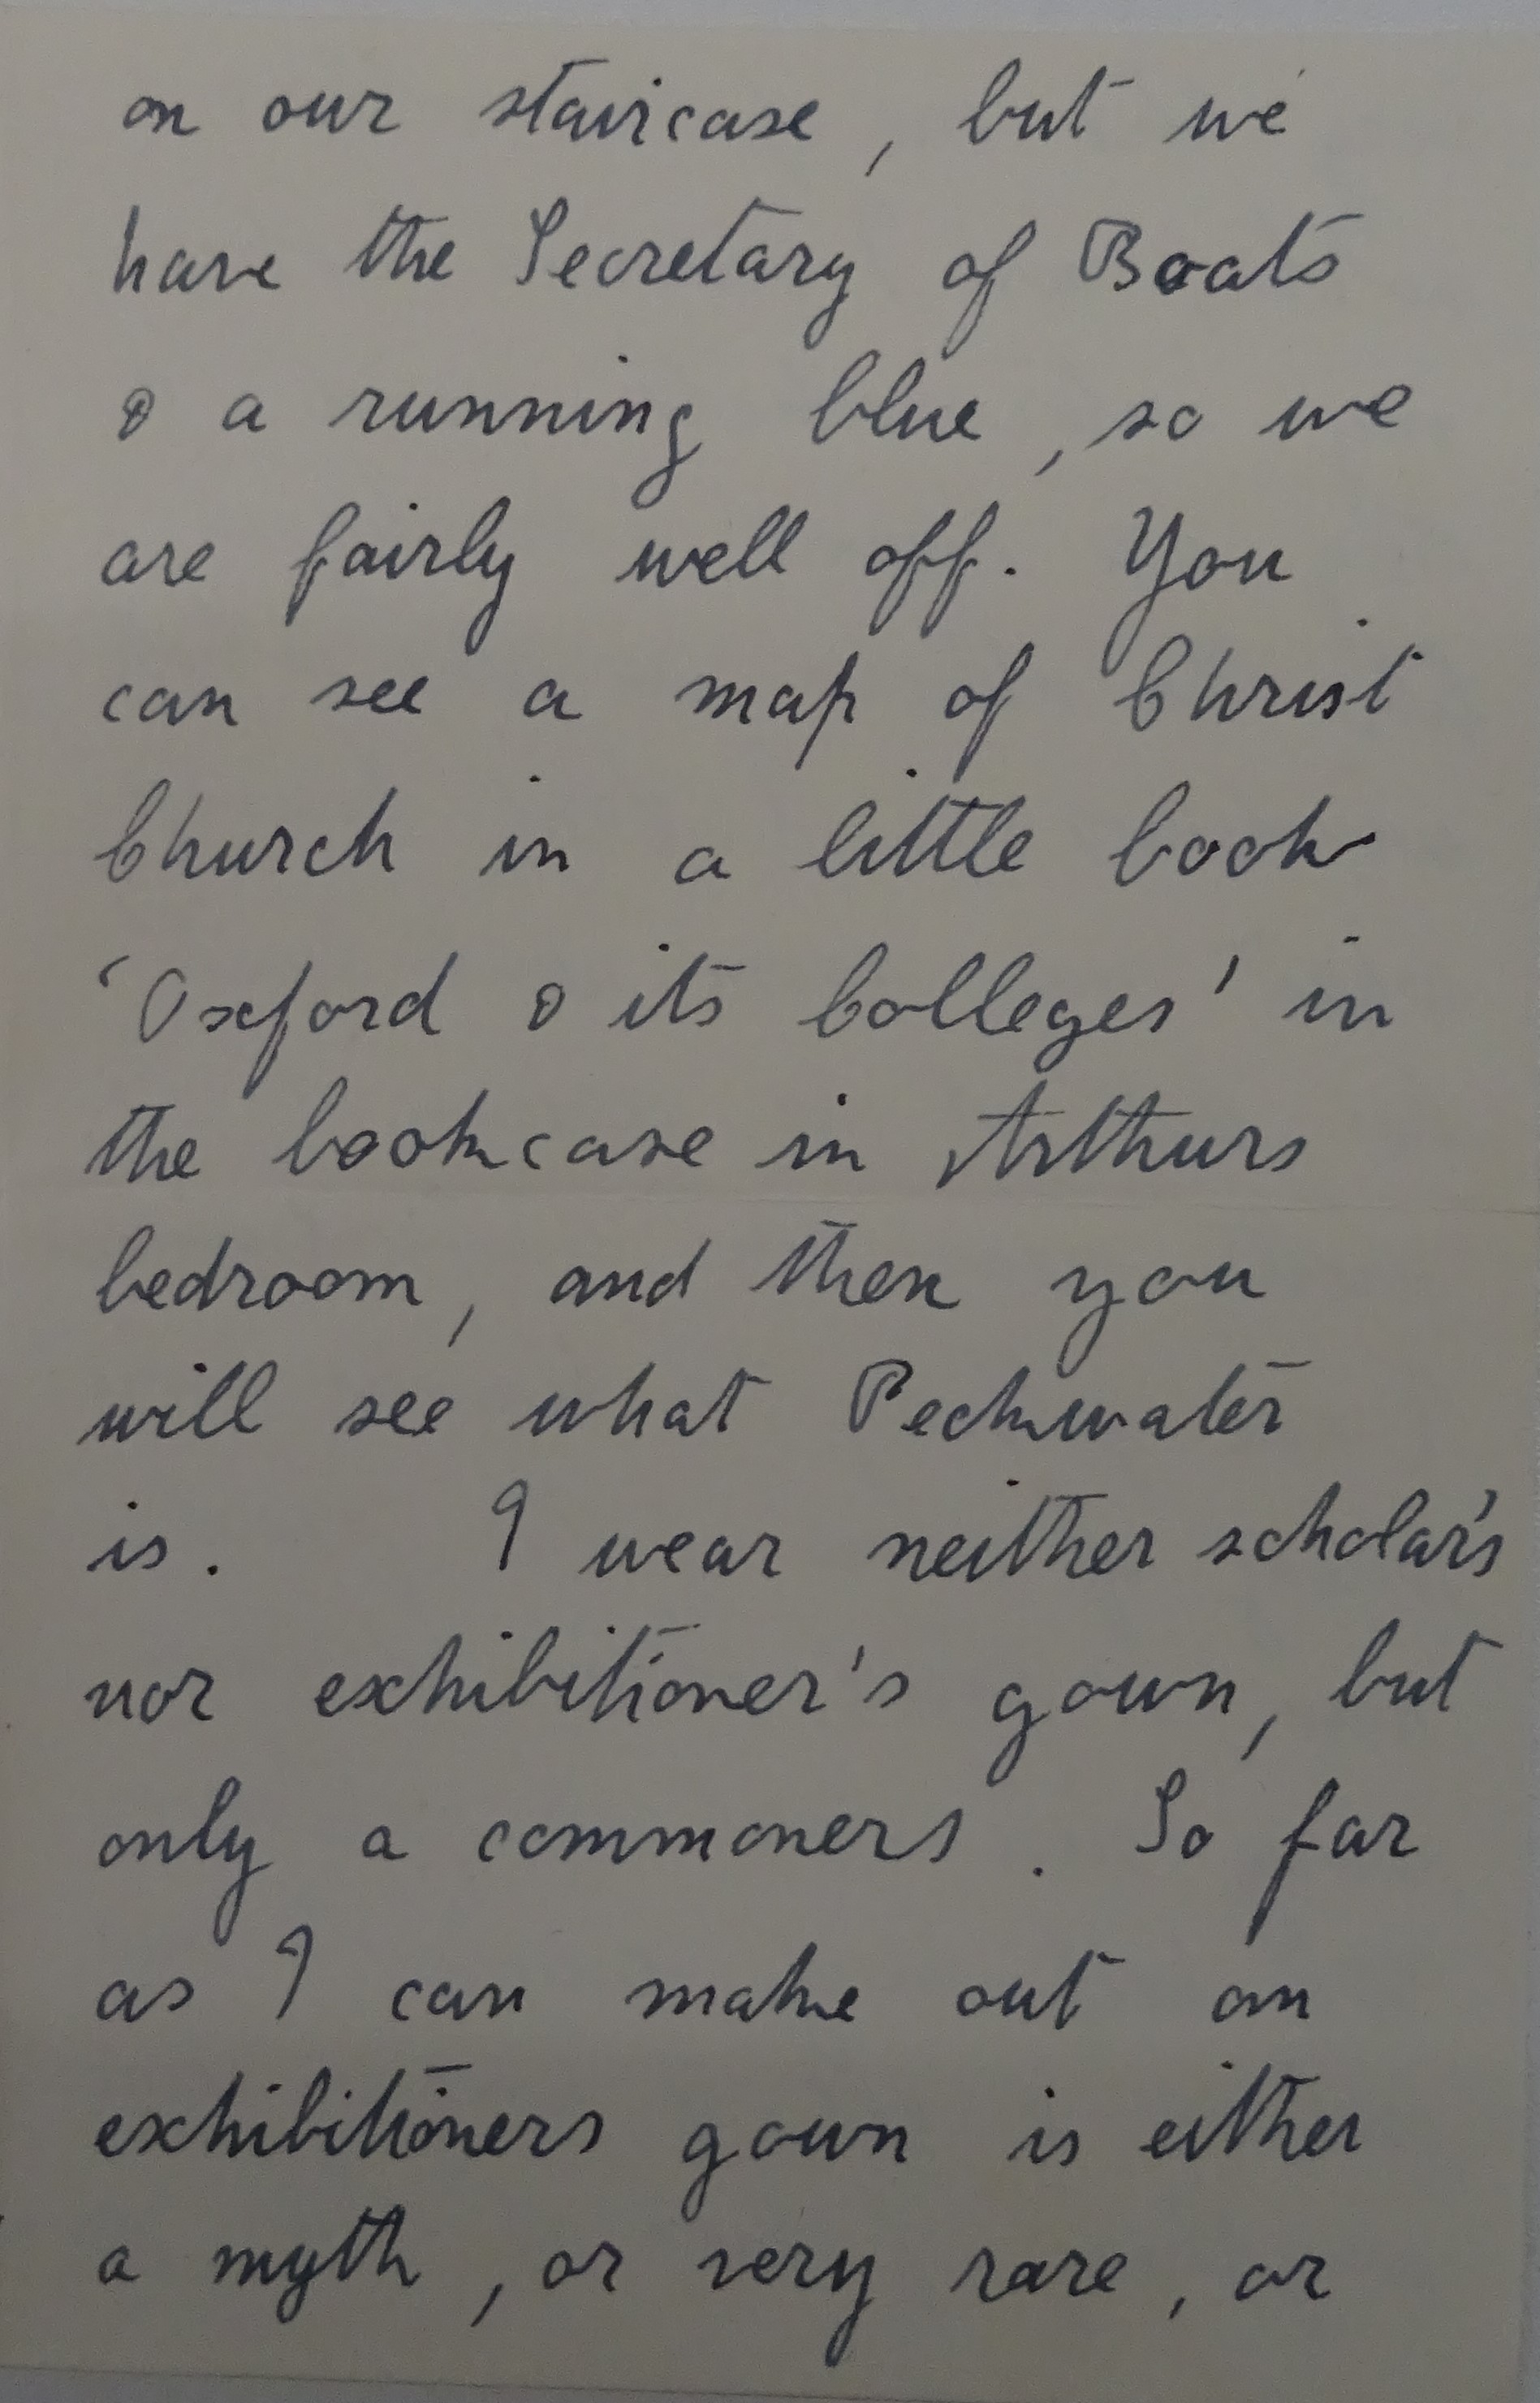 on our staircase, but we
have the Secretary of Boats
& a running blue, so we
are fairly well off. You
can see a map of Christ
Church in a little book
'Oxford & its Colleges' in
the bookcase in Arthurs
bedroom, and then you
will see what Peckwater
is. I wear neither scholar's
nor exhibitioner's gown, but
only a commoners. So far
as I can make out an
exhibitioners gown is either
a myth, or very rare, or